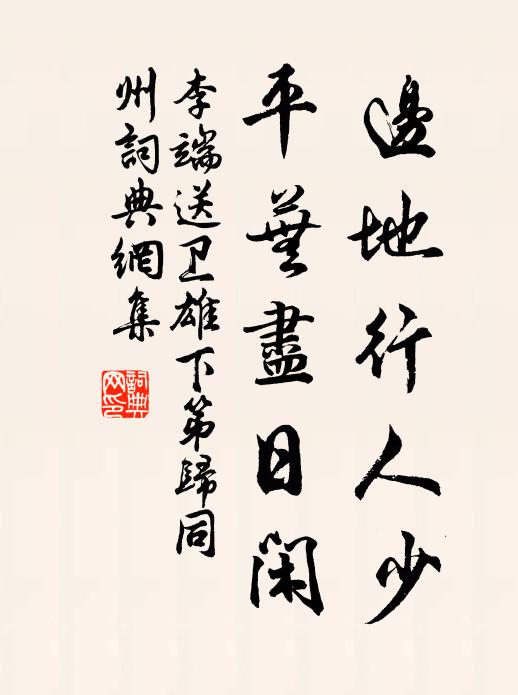 邊地行人少
平蕪盡日閑
李端送卫雄下第歸同
州詞典網集
詞典
网印